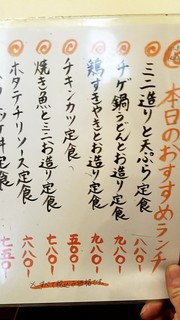 本日のおすすめランチ
ミニ造りと天ぷら定食 八八〇
チゲ鍋うどんとお造り定食 九八〇
鶏すきやきとお造り定食 九八〇
チキンカツ定食 五〇〇
焼き魚とミニお造り定食 七八〇
ホタテチリソース定食 六八〇
定食 七五〇